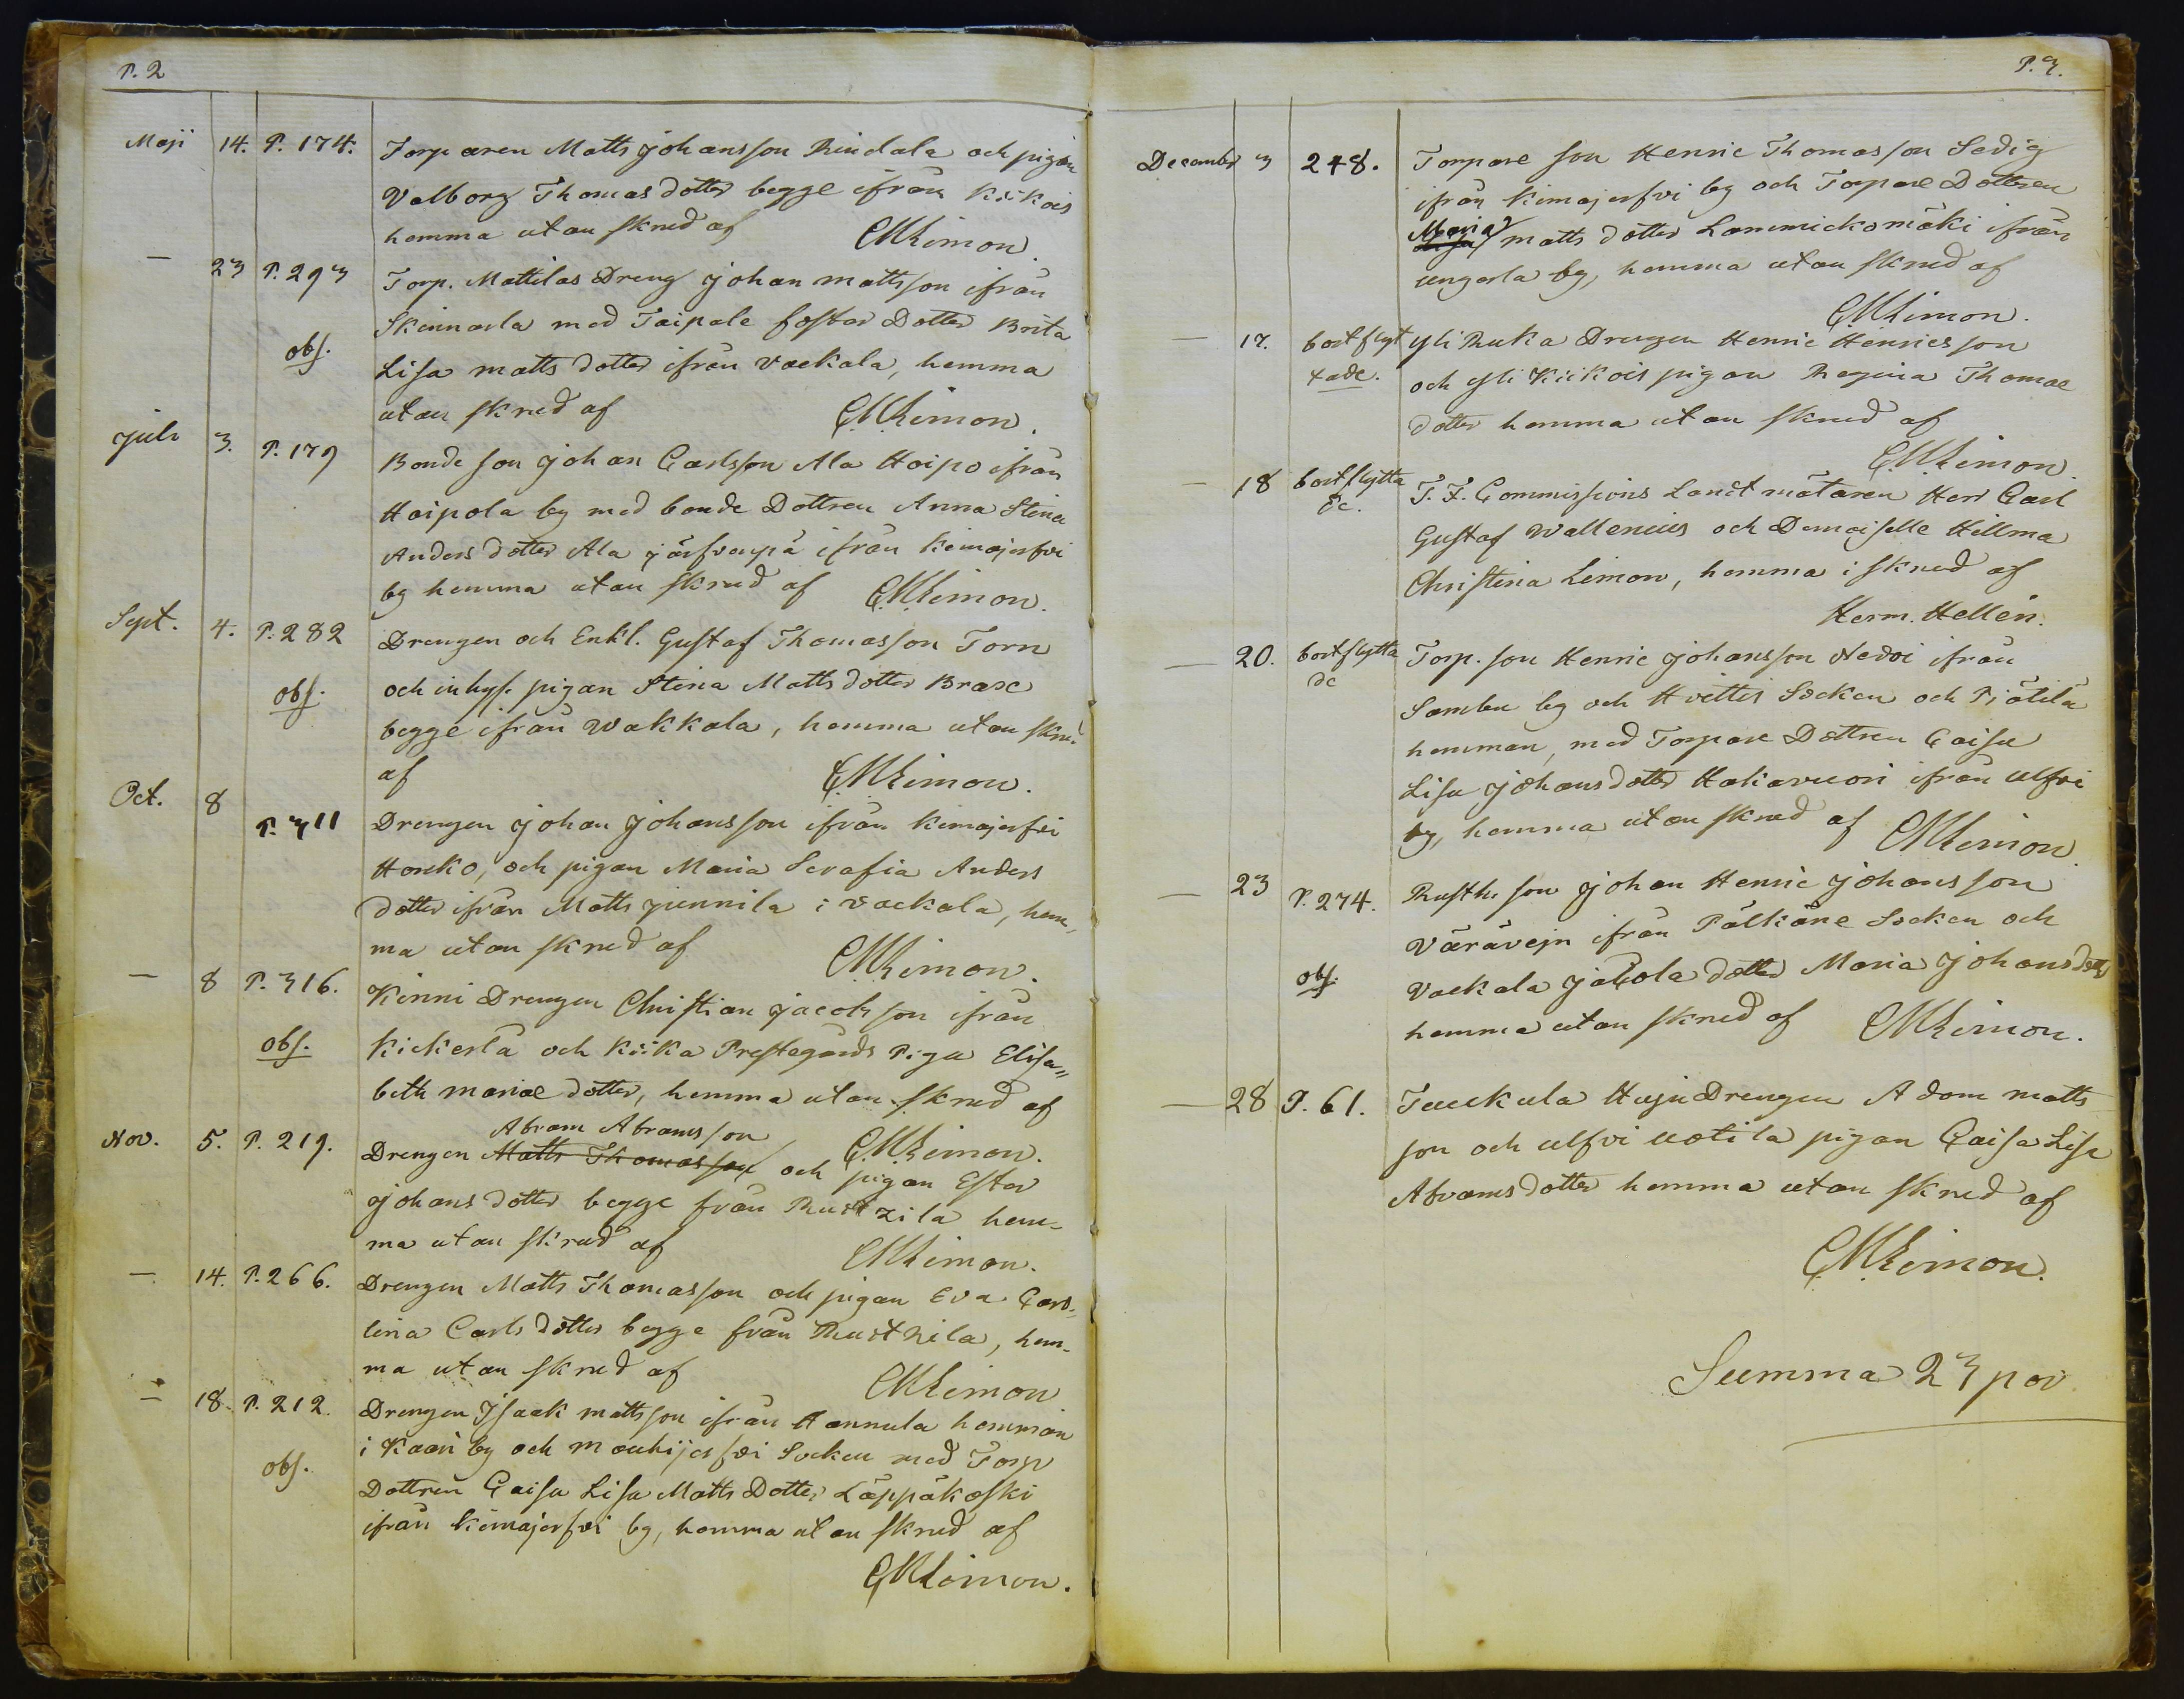 P. 2
Maji 14. P. 174. Torparen Matts Johansson Rindala och pigan
Valborg Thomas dotter begge ifrån Kiikois
hemma utan skrud af CMLimon.
— 23 P. 293 Torp. Mattilas Dreng Johan mattsson ifrån
Skinnarla med Taipale foster Dotter Brita
obs. Lisa matts dotter ifrån Vackala, hemma
utan skrud af CMLimon.
Juli 3. P. 179 Bonde son Johan Carlsson Ala Hoipo ifrån
Hoipola by med bonde Dottren Anna Stina
Anders dotter Ala järfvenpä ifrån Kimajerfvi
by hemma utan skrud af CMLimon.
Sept. 4. P. 282 Drengen och Enkl. Gustaf Thomasson Torn
obs. och inhys. pigan Stina Matts dotter Brax
begge ifrån Wakkala, hemma utan skrud
af CMLimon.
Oct. 8 P. 311 Drengen Johan Johansson ifrån Kimajerfvi
Horcko, och pigan Maria Serafia Anders
dotter ifrån Matts junnila i Vackala, hem,
ma utan skrud af CMLimon.
— 8 P. 316. Kinni Drengen Christian Jacobsson ifrån
obs. Kickerlä och Kiika Prestegårds Piga Elisa"
beth mariae dotter, hemma utan skrud af
Abram Abramsson CMLimon.
Nov. 5. P. 219. Drengen Matts Thomasson och pigan Ester
Johans dotter begge från Rustzila hem-
ma utan skrud af CMLimon.
— 14. P. 266. Drengen Matts Thomasson och pigan Eva Caro-
lina Carls dotter begge från Rusthila, hem-
ma utan skrud af CMLimon
— 18. P. 212. Drengen Isaak mattsson ifrån Hannula hemman
i Kaari by och Mouhijerfvi Socken med Torp
obs. Dottren Caisa Lisa Matts Dotter Läppäkoski
ifrån Kimajerfvi by, hemma utan skrud af
CMLimon.
P. 3.
December 3 248. Torpare son Henric Thomasson Sedig
ifrån Kimajerfvi by och Torpare Dottren
Maria matts dotter Lammickomäki ifrån
ungarla by, hemma utan skrud af
CMLimon.
— 17. bortflyt Yli Ruka Drengen Henric Henricsson
tade. och Yli Kiikois pigan Regina Thomae
dotter hemma utan skrud af
CMLimon.
— 18 bortflytta T. F. Commissions Landtmätaren Herr Carl
de. Gustaf Wallenius och Demoiselle Hillma
Christina Limon, hemma i skrud af
Herm. Hellén.
— 20. bortflytta Torp. son Henric Johansson Nedvi ifrån
de Sambu by och Hvittis Socken och Pjätilä
hemman, med Torpare Dottren Caisa
Lisa Johans dotter Hakavuori ifrån ulfvi
by, hemma utan skrud af CMLimon.
— 23 P. 274. Rusth. son Johan Henric Johansson
Väräväjn ifrån Pälkäne Socken och
obs. Vackala jacola dotter Maria Johansdotter
hemma utan skrud af CMLimon.
— 28 P. 61. Tauckula Huju Drengen Adam matts
son och ulfvi uotila pigan Caisa Lisa
Abrams dotter hemma utan skrud af
CMLimon.
Summa 23 par